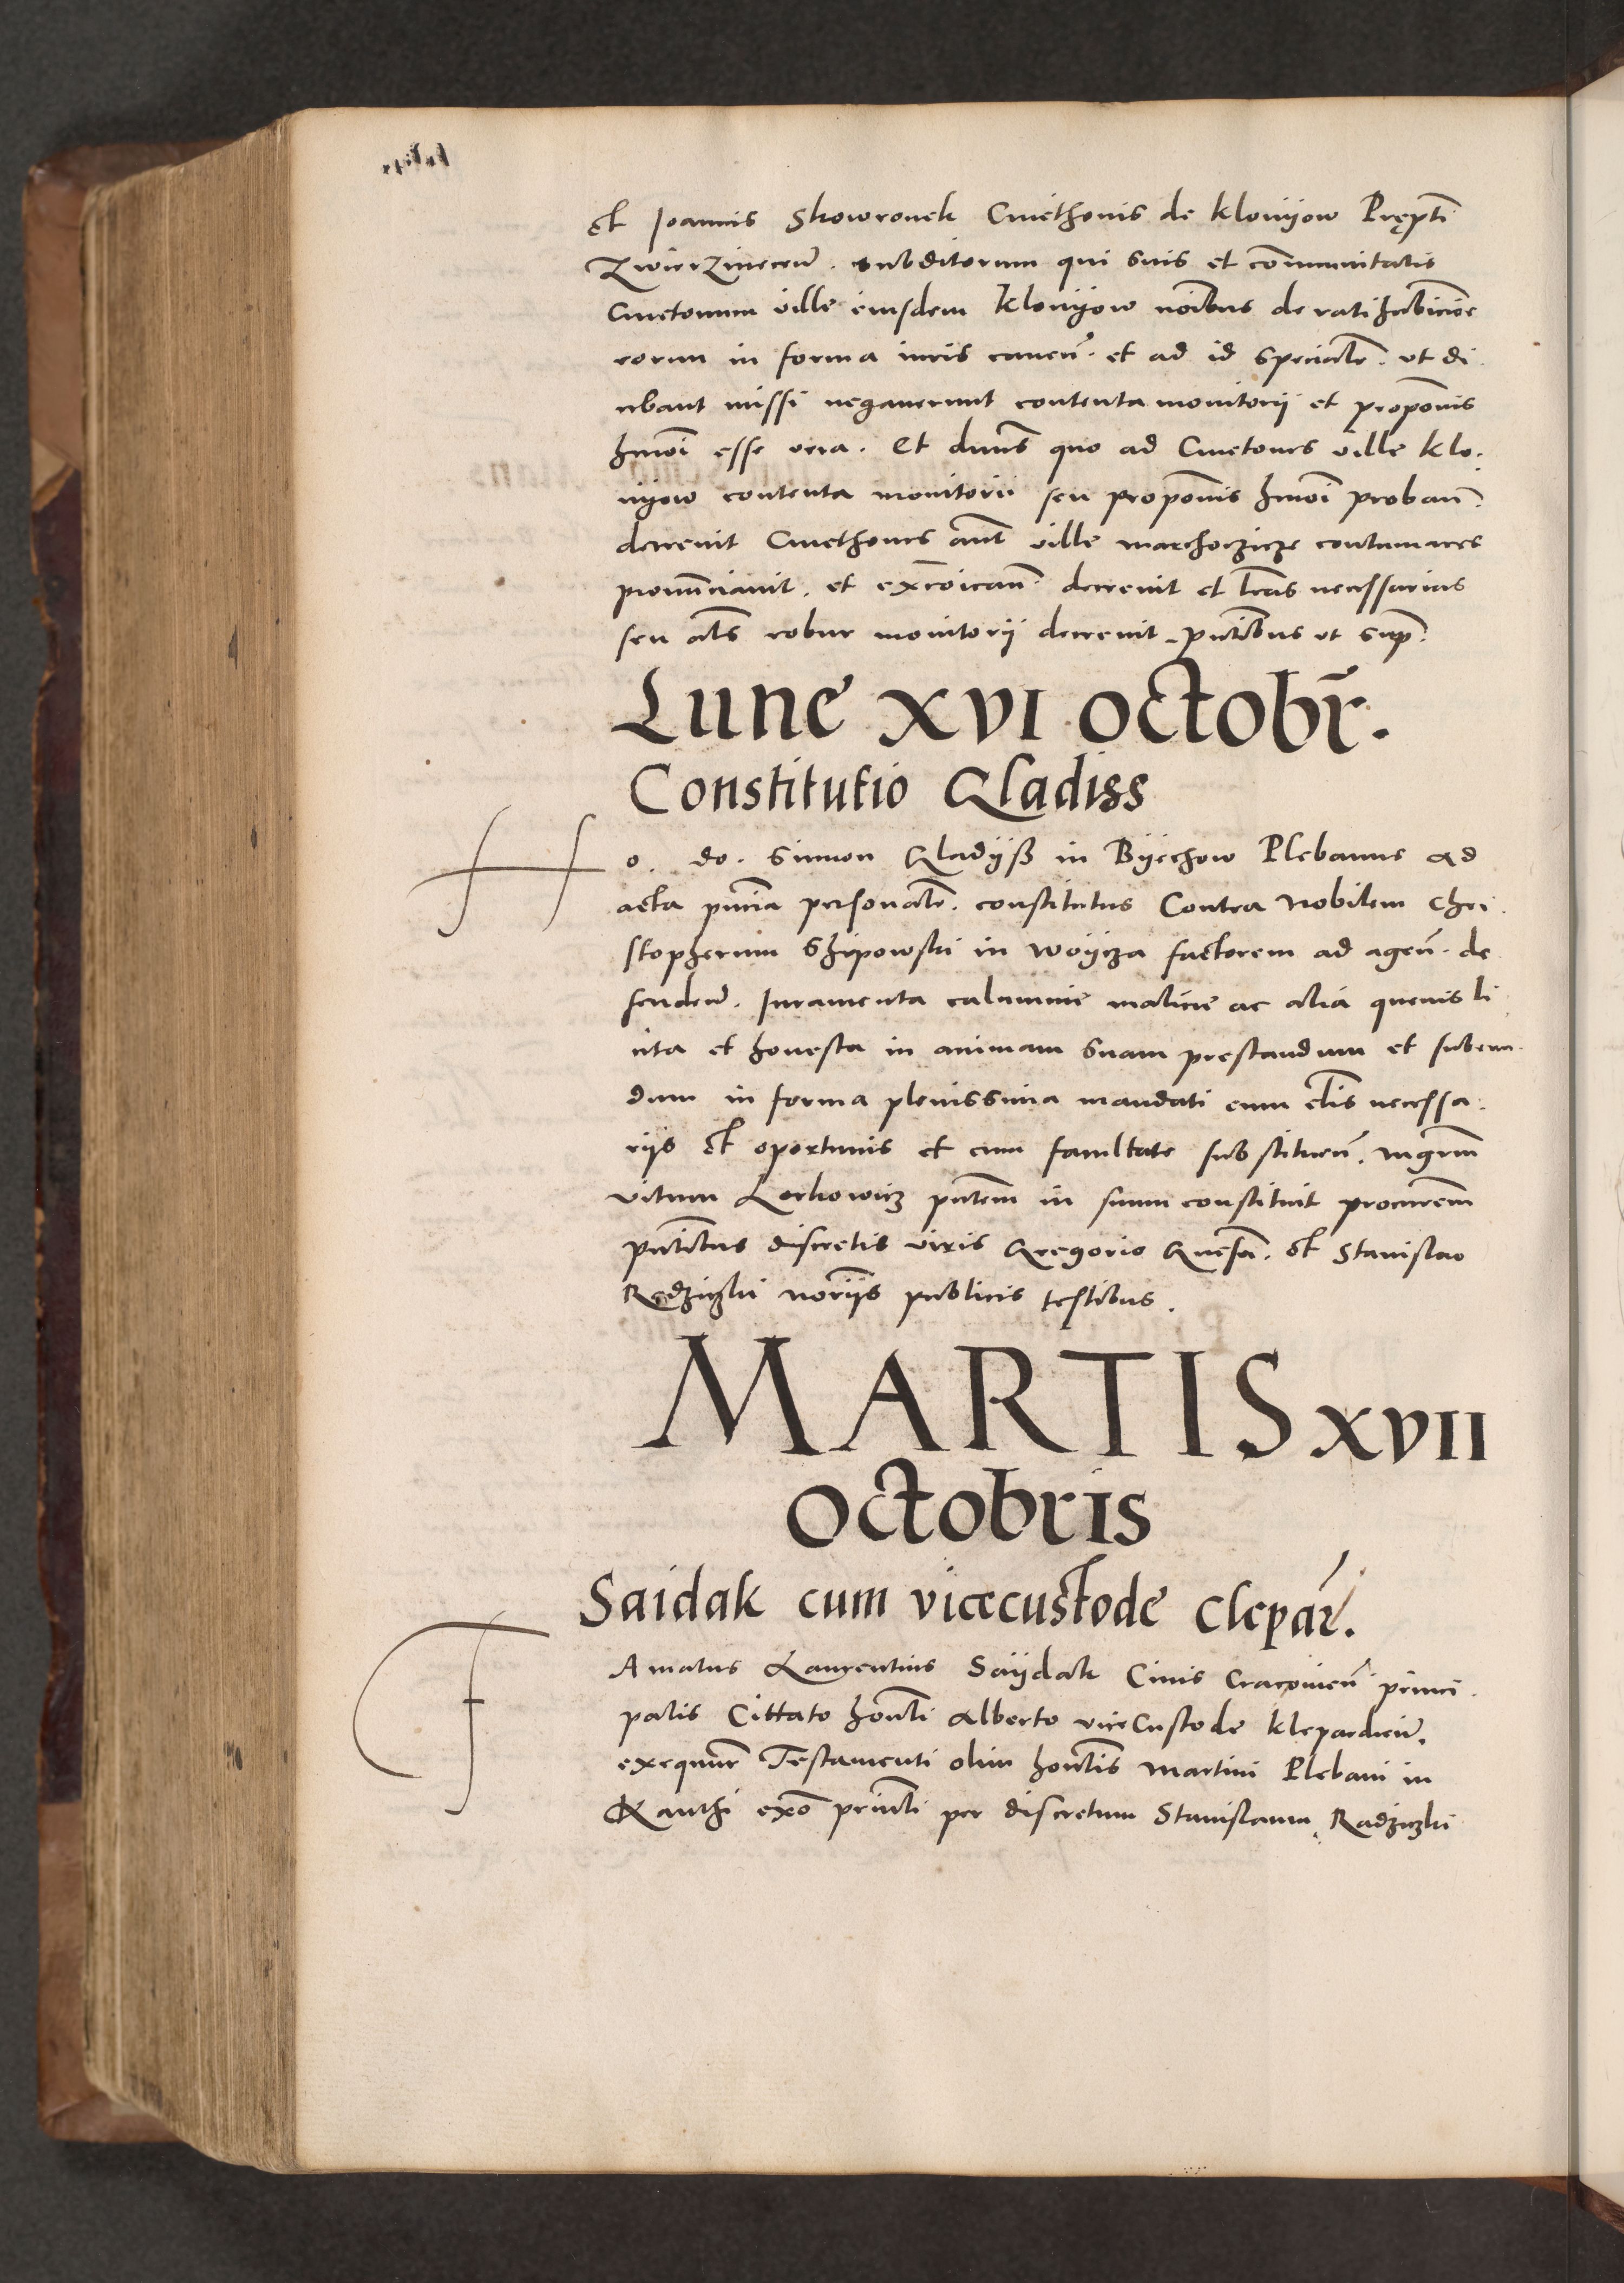 et Joannis Skowronek Cmethonis de klonyow Prępti
Zwierzinecen̄. subditorum qui suis et com̄munitatis
Cmetonum ville eiusdem klonyow noi͞bus de ratihabicio͞e
eorum in forma iuris caven̄. et ad id speciale͞. ut di
cebant missi negaverunt contenta monitorij et propo͞nis
hmo͞i esse vera. Et dnu͞s quo ad Cmetones ville klo.
nyow contenta monitorii seu propo͞nis hmo͞i proban̄.
decrevit Cmethones au͞t ville marchoczicze contumaces
pronu͞nciavit. et exco͞ican̄. decrevit et lr͞as necessarias
seu al͞s robur monitorij decrevit. pn͞tibus ut sup͞.
Lune XVI octobr̄.
Constitutio Gladiss
Ho. do. Simon Gladyß in Byechow Plebanus ad
acta pn͞cia personal͞r. constitutus Contra Nobilem Chri.
stopherum Szipowski in woycza factorem ad agen̄. de
fenden̄. Juramenta calumnie malicie ac alia quevis li
cita et honesta in animam suam prestandum et subeun.
dum in forma plenissima mandati cum cl͞is necessa.
rijs et oportunis et cum facultate substituen̄. mgr͞um
vitum Lorkowicz pn͞tem in suum constituit procure͞m
pn͞tibus discretis viris Gregorio et Stanislao
Radziczki no͞rijs publicis testibus.
MARTIS XVII
octobris
Saidak cum vicecustode Clepar̄.
FAmatus Laurentius Saydak Civis Cracovien̄ princi.
palis Cittato hon͞li Alberto viceCustode klepardien̄.
exequu͞r Testamenti olim hon͞lis Martini Plebani in
Kanthi exo͞ prin͞cti per discretum Stanislaum Radziczki